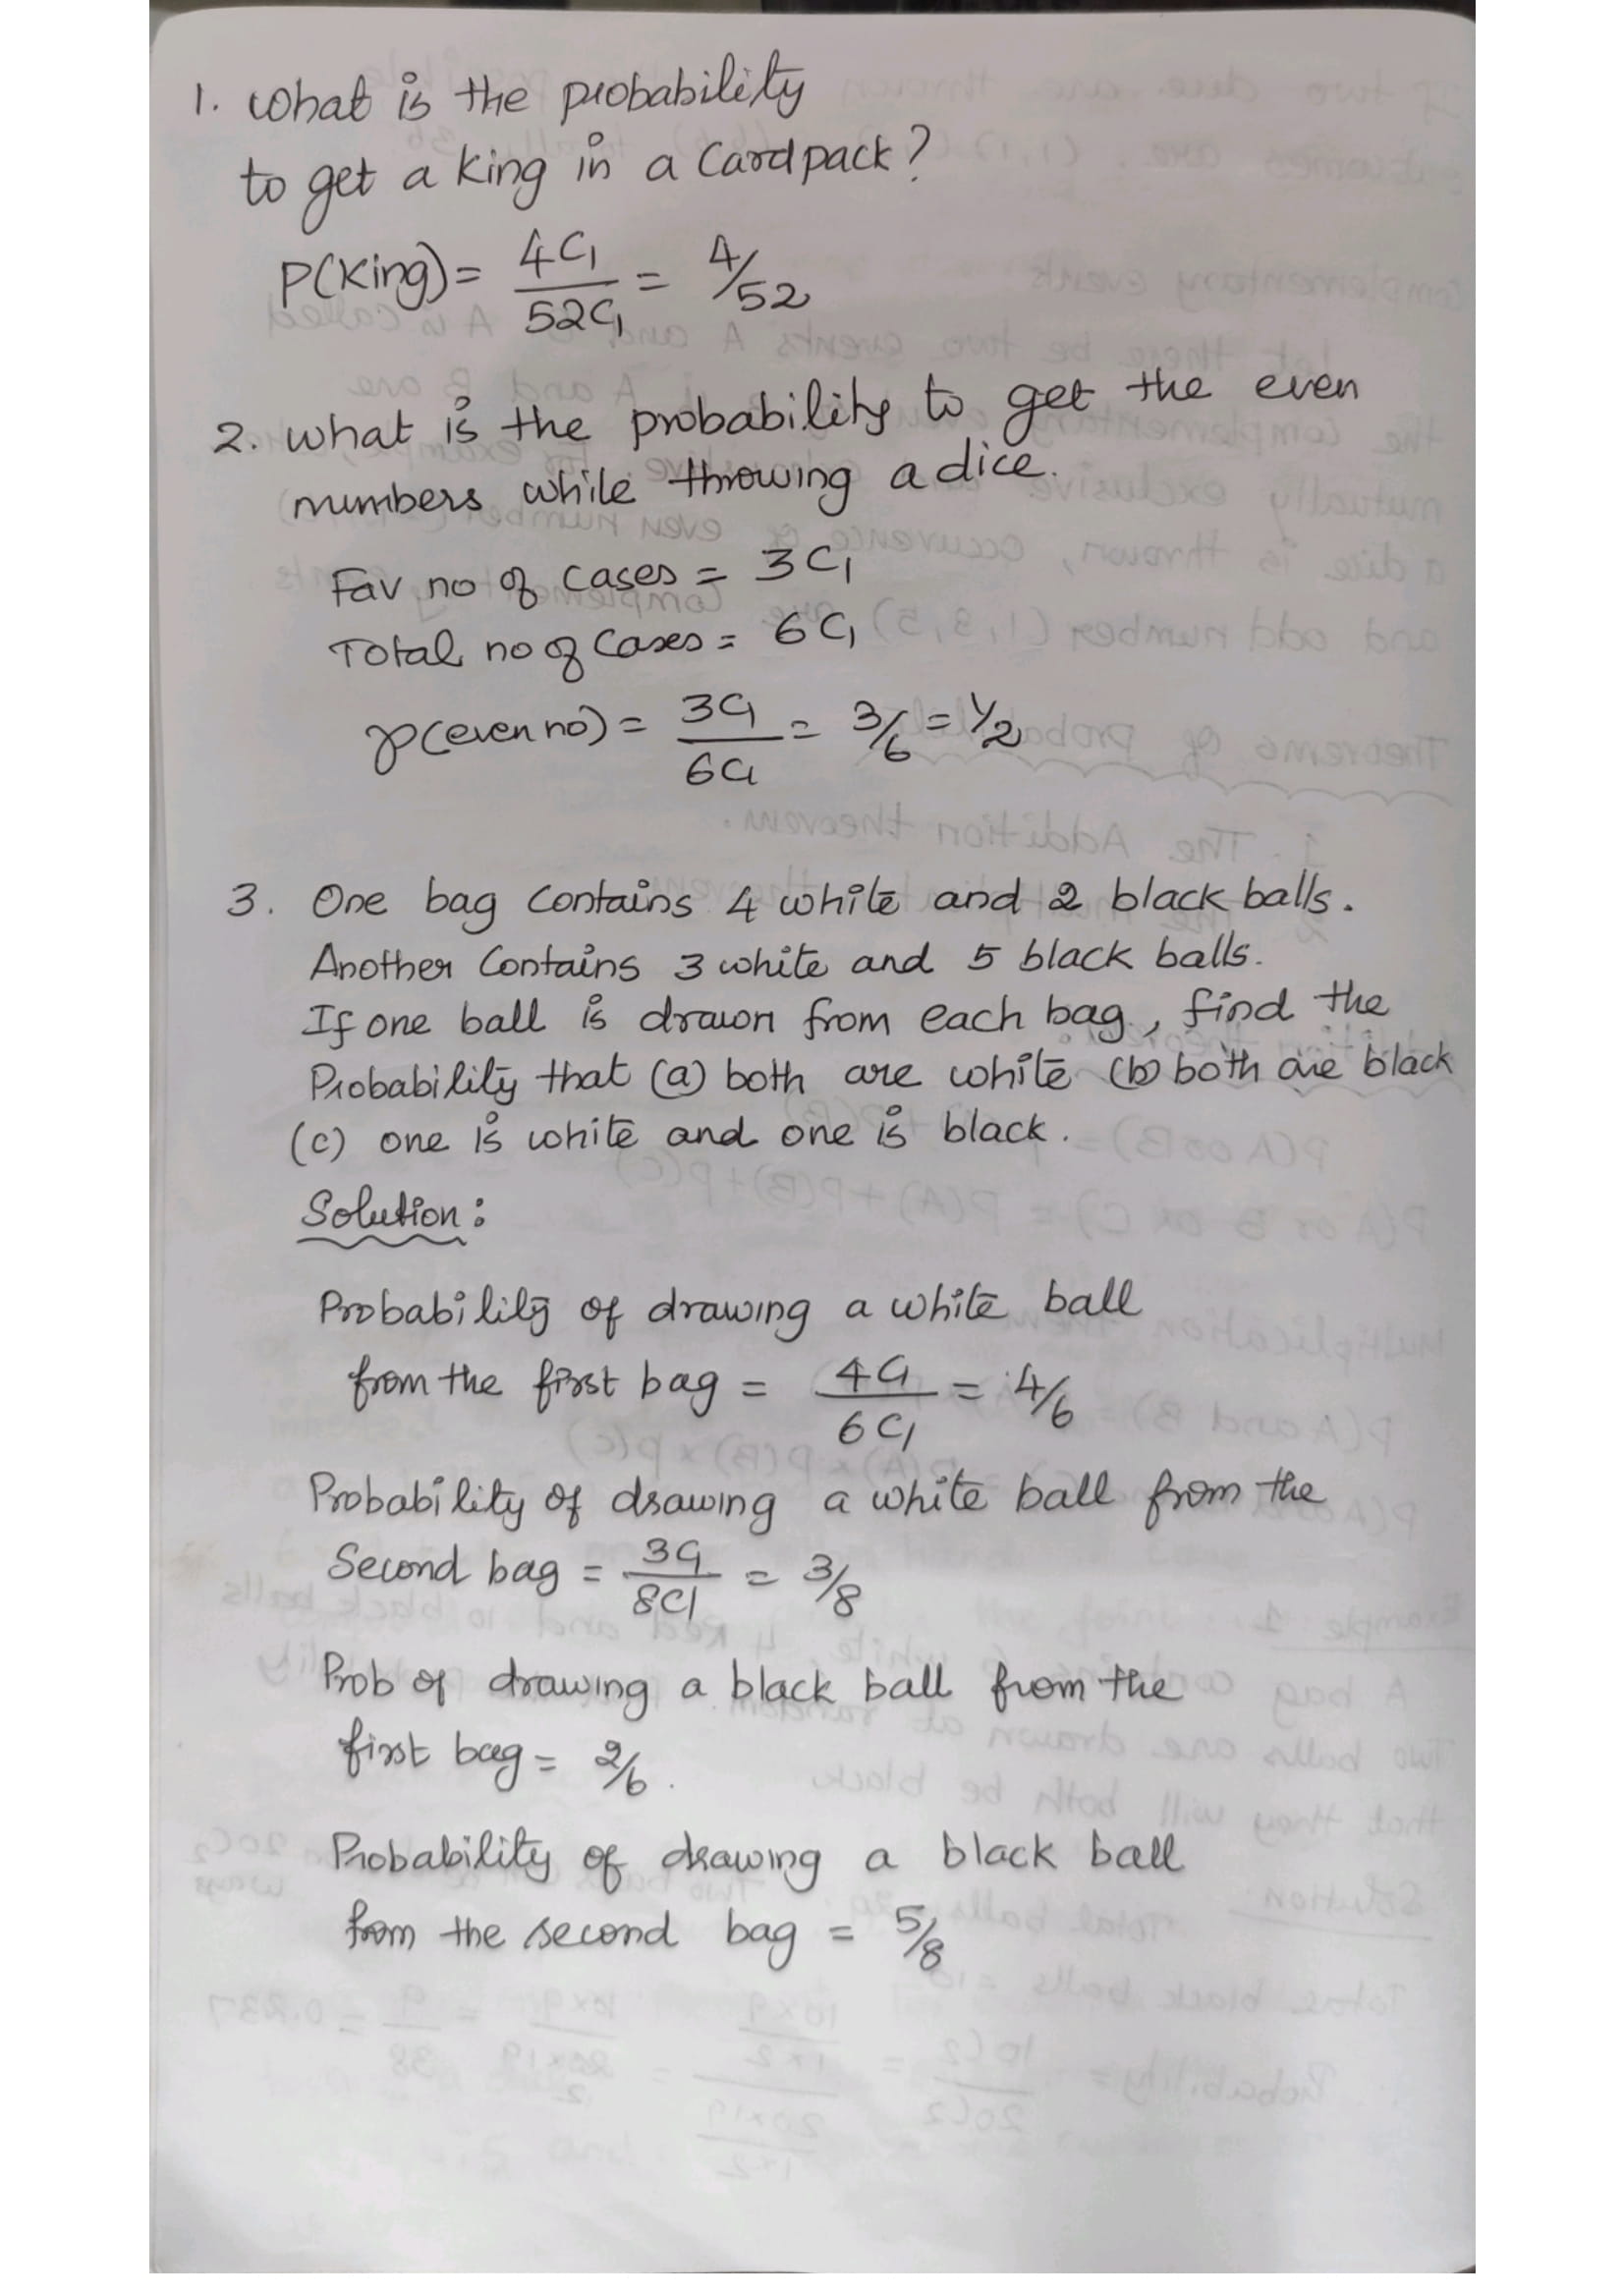 1. What is the probability
to get a king in a Card pack?
P(King) = 4C1 / 52C1 = 4/52
2. What is the probability to get the even
numbers while throwing a dice.
Fav no of cases = 3C1
Total no of Cases = 6C1
P(even no) = 3C1 / 6C1 = 3/6 = 1/2
3. One bag contains 4 white and 2 black balls.
Another Contains 3 white and 5 black balls.
If one ball is drawn from each bag, find the
Probability that (a) both are white (b) both are black
(c) one is white and one is black.
Solution:
Probability of drawing a white ball
from the first bag = 4C1 / 6C1 = 4/6
Probability of drawing a white ball from the
Second bag = 3C1 / 8C1 = 3/8
Prob of drawing a black ball from the
first bag = 2/6.
Probability of drawing a black ball
from the second bag = 5/8